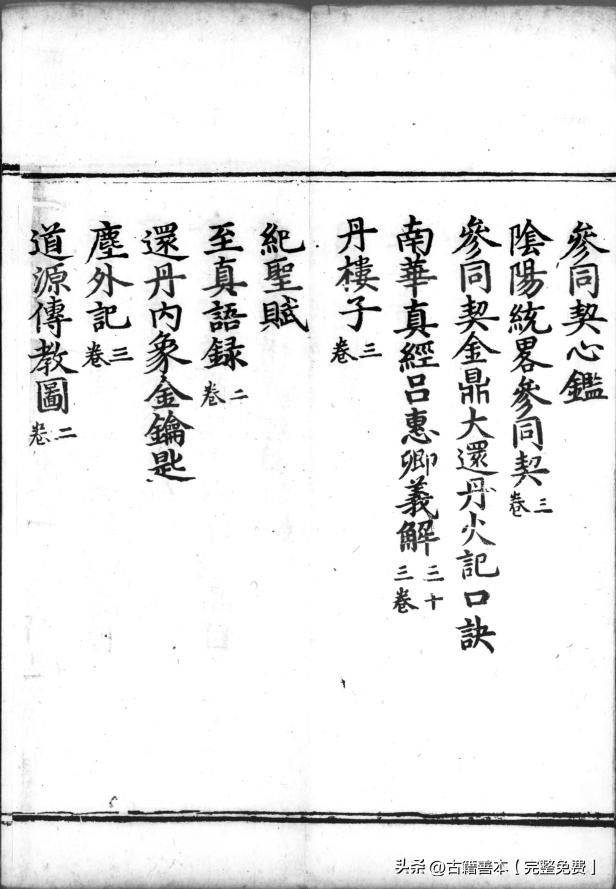 參同契心鑑
陰陽統畧參同契三卷
參同契金鼎大還丹火記口訣
南華真經呂惠卿義解三十三卷
丹樓子三卷
紀聖賦
至真語録二卷
還丹內象金鑰匙
塵外記三卷
道源傳教圖二卷
头条@古籍善本【完整免费】